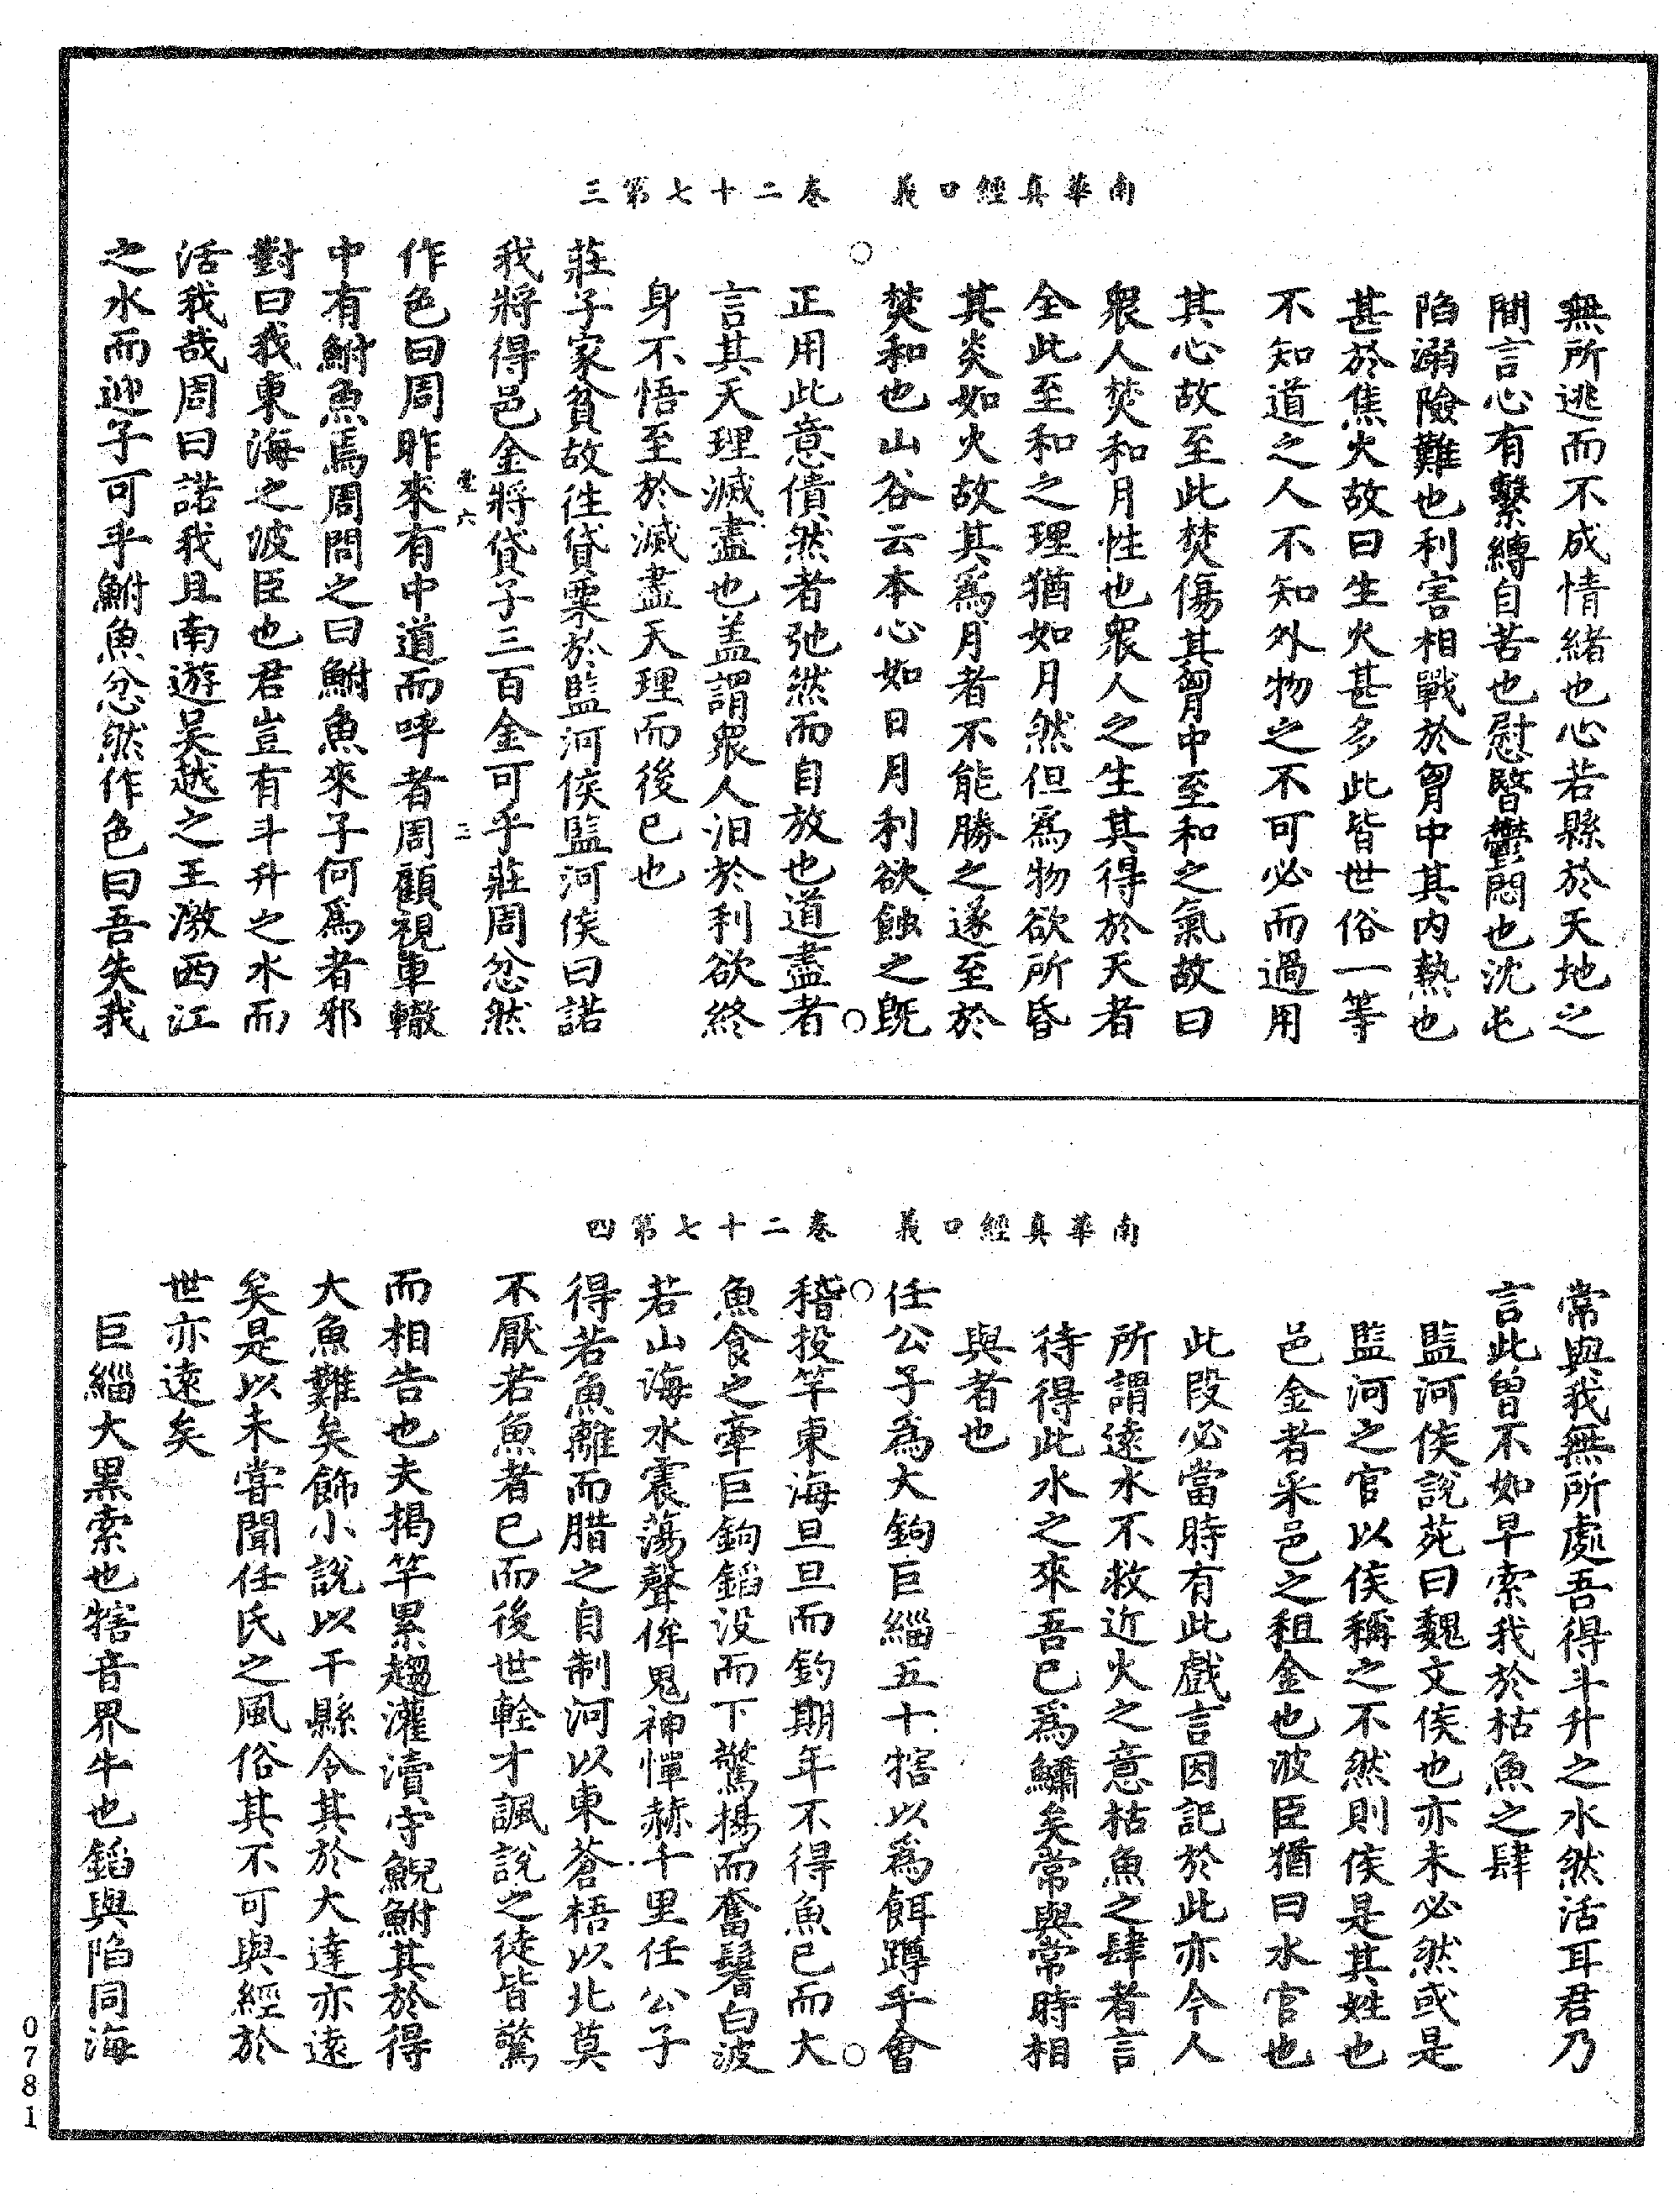 南華真經口義　卷二十七第三
無所逃而不成情緒也心若縣於天地之
間言心有繫縛自苦也慰暋鬱悶也沈屯
陷溺險難也利害相戰於胷中其內熱也
甚於焦火故曰生火甚多此皆世俗一等
不知道之人不知外物之不可必而過用
其心故至此焚傷其胷中至和之氣故曰
衆人焚和月性也衆人之生其得於天者
全此至和之理猶如月然但爲物欲所昏
其炎如火故其爲月者不能勝之遂至於
焚和也山谷云本心如日月利欲蝕之旣
正用此意僓然者弛然而自放也道盡者
言其天理滅盡也盖謂衆人汨於利欲終
身不悟至於滅盡天理而後已也
莊子家貧故往貸粟於監河侯監河侯曰諾
我將得邑金將貸子三百金可乎莊周忿然
作色曰周昨來有中道而呼者周顧視車轍
中有鮒魚焉周問之曰鮒魚來子何爲者邪
對曰我東海之波臣也君豈有斗升之水而
活我哉周曰諾我且南遊吳越之王激西江
之水而迎子可乎鮒魚忿然作色曰吾失我
南華真經口義　卷二十七第四
常與我無所處吾得斗升之水然活耳君乃
言此曾不如早索我於枯魚之肆
監河侯說苑曰魏文侯也亦未必然或是
監河之官以侯稱之不然則侯是其姓也
邑金者采邑之租金也波臣猶曰水官也
此段必當時有此戲言因記於此亦今人
所謂遠水不救近火之意枯魚之肆者言
待得此水之來吾已爲鱐矣常與常時相
與者也
任公子爲大鉤巨緇五十犗以爲餌蹲乎會
稽投竿東海旦旦而釣期年不得魚已而大
魚食之牽巨鉤錎没而下驚揚而奮鬐白波
若山海水震蕩聲侔鬼神憚赫千里任公子
得若魚離而腊之自制河以東蒼梧以北莫
不厭若魚者已而後世輇才諷說之徒皆驚
而相告也夫揭竿累趨灌瀆守鯢鮒其於得
大魚難矣飾小說以干縣令其於大達亦遠
矣是以未嘗聞任氏之風俗其不可與經於
世亦遠矣
巨緇大黑索也犗音界牛也錎與陷同海
0781